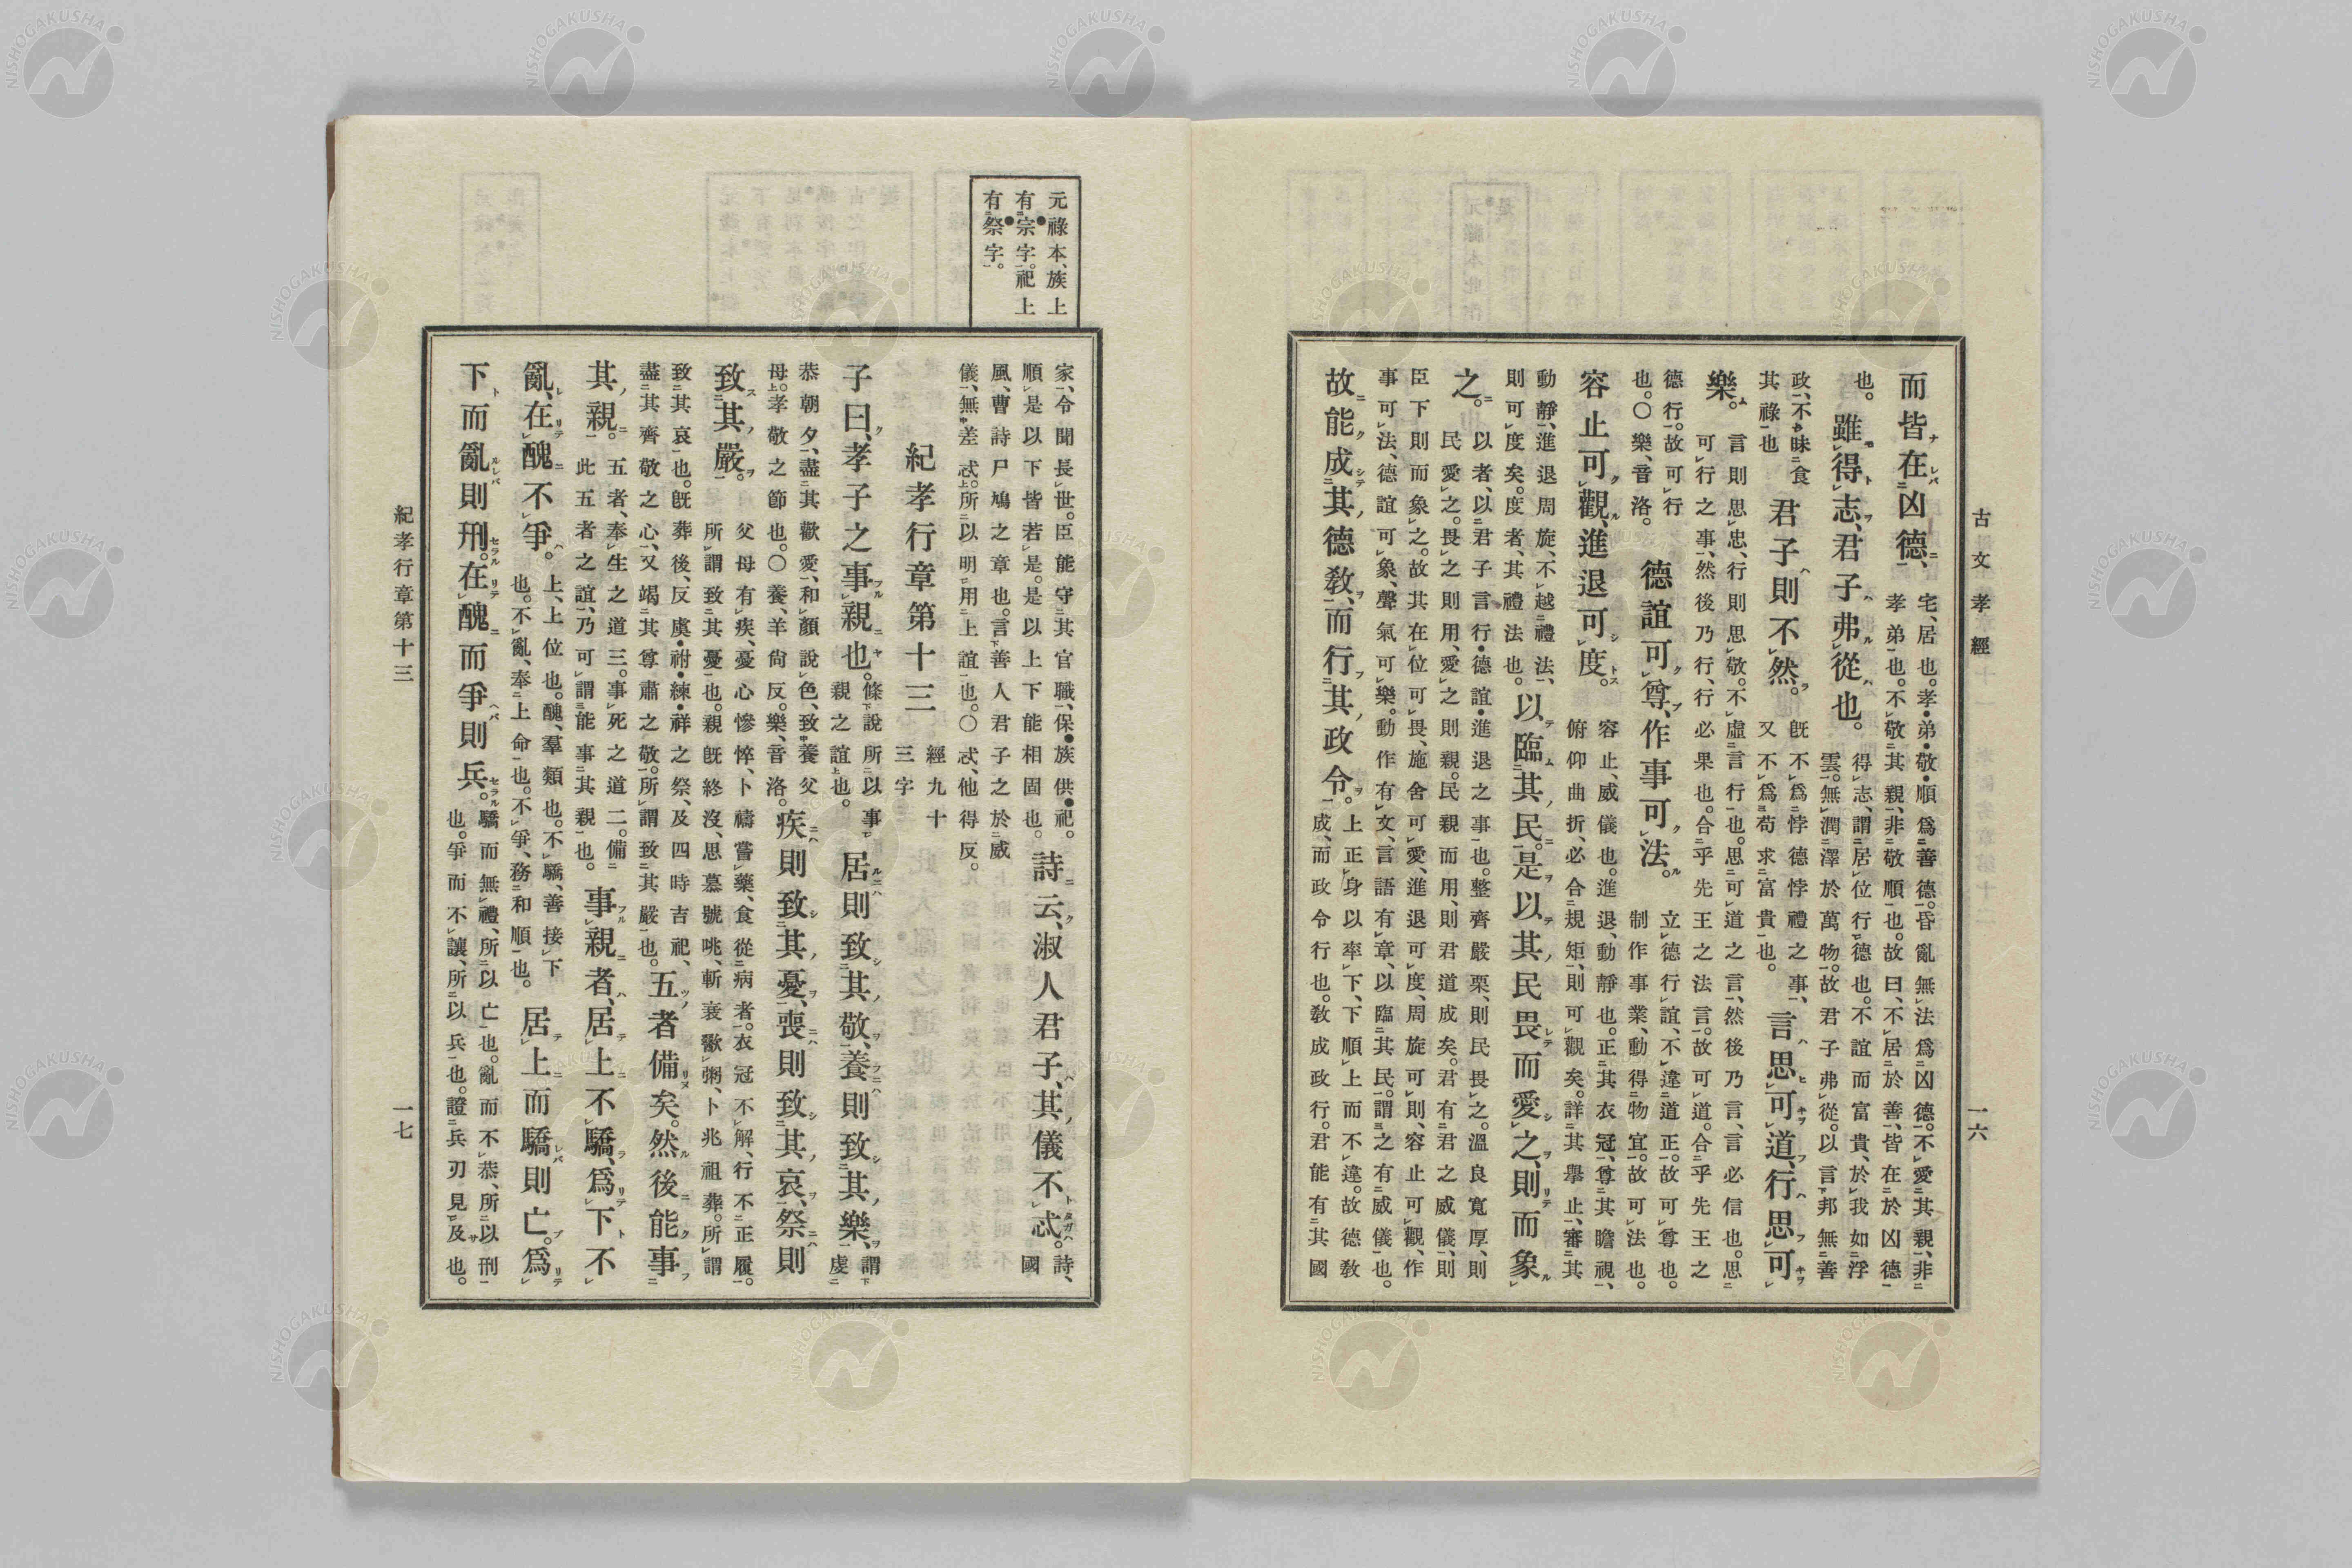 古文孝經
一六
而皆在凶德、
宅、居也。孝・弟・敬・順爲善德。昏亂無法爲凶德。不愛其親、非
孝弟也。不敬其親、非敬順也。故曰、不居於善、皆在於凶德
也。
雖得志、君子弗從也。
得志、謂居位行德也。不誼而富貴、於我如浮
雲。無潤澤於萬物。故君子弗從。以言邦無善
政、不昧食
其祿也
君子則不然。
既不爲悖德悖禮之事、
又不爲苟求富貴也。
言思可道、行思可
樂。
言則思忠、行則思敬。不虛言行也。思可道之言、然後乃言、言必信也。思
可行之事、然後乃行、行必果也。合乎先王之法言。故可道。合乎先王之
德行。故可行
也。〇樂、音洛。
德誼可尊、作事可法。
立德行誼、不違道正。故可尊也。
制作事業、動得物宜。故可法也。
容止可觀、進退可度。
容止、威儀也。進退、動靜也。正其衣冠、尊其瞻視、
俯仰曲折、必合規矩、則可觀矣。詳其擧止、審其
動靜、進退周旋、不越禮法、
則可度矣。度者、其禮法也。
以臨其民。是以其民畏而愛之、則而象
之。
以者、以君子言行・德誼・進退之事也。整齊嚴栗、則民畏之。溫良寬厚、則
民愛之。畏之則用、愛之則親。民親而用、則君道成矣。君有君之威儀、則
臣下則而象之。故其在位可畏、施舍可愛、進退可度、周旋可則、容止可觀、作
事可法、德誼可象、聲氣可樂。動作有文、言語有章、以臨其民。謂之有威儀也。
故能成其德敎、而行其政令。
上正身以率下、下順上而不違。故德敎
成、而政令行也。敎成政行。君能有其國
元祿本、族上
有宗字。祀上
有祭字。
家、令聞長世。臣能守其官職、保族供祀。
順是以下皆若是。是以上下能相固也。
詩云、淑人君子、其儀不忒。
詩、國
風、曹詩尸鳩之章也。言善人君子之於威
儀、無差忒。所以明用上誼也。〇忒、他得反。
紀孝行章第十三
經九十
三字
子曰、孝子之事親也。
條說所以事
親之誼也。
居則致其敬、養則致其樂、
謂
虔
恭朝夕、盡其歡愛、和顏說色、致養父
母。孝敬之節也。〇養、羊尙反。樂、音洛。
疾則致其憂、喪則致其哀、祭則
致其嚴。
父母有疾、憂心慘悴、卜禱嘗藥、食從病者。衣冠不解、行不正履。
所謂致其憂也。親既終沒、思慕號咷、斬衰歠粥、卜兆祖葬。所謂
致其哀也。既葬後、反虞・祔・練・祥之祭、及四時吉祀、
盡其齊敬之心、又竭其尊肅之敬。所謂致其嚴也。
五者備矣。然後能事
其親。
五者、奉生之道三。事死之道二。備
此五者之誼、乃可謂能事其親也。
事親者、居上不驕、爲下不
亂、在醜不爭。
上、上位也。醜、羣類也。不驕、善接下
也。不亂、奉上命也。不爭、務和順也。
居上而驕則亡。爲
下而亂則刑。在醜而爭則兵。
驕而無禮、所以亡也。亂而不恭、所以刑
也。爭而不讓、所以兵也。證兵刃見及也。
紀孝行章第十三
一七
NISHOGAKUSHA